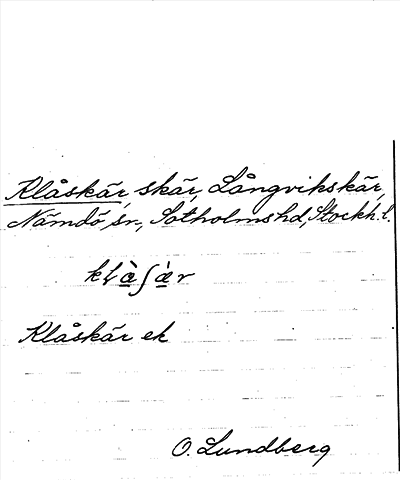 Klåskär, skär, Långvikskär,
Nämdö sn., Sotholms hd, Stockh. l.
Klåskär ek
O. Lundberg